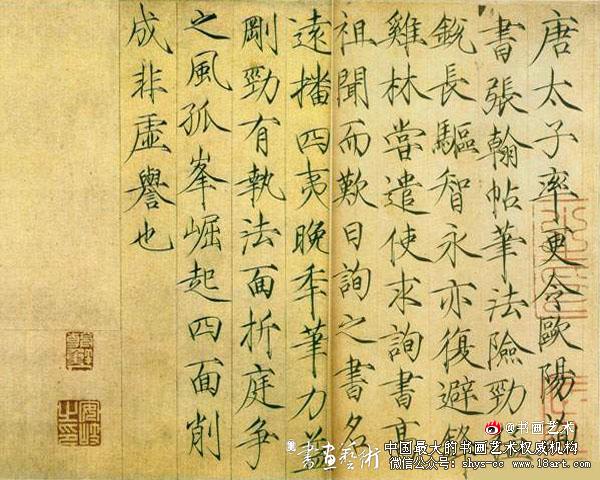 唐太子率更令歐陽詢
書張翰帖筆法險勁猛
銳長驅智永亦復避鋒
雞林嘗遣使求詢書高
祖聞而歎曰詢之書名
遠播四夷晚秊筆力益
剛勁有執法面折庭爭
之風孤峯崛起四面削
成非虛譽也
@书画艺术
書畫藝術
中国最大的书画艺术权威机构
微信公众号：shys-cc www.18art.com